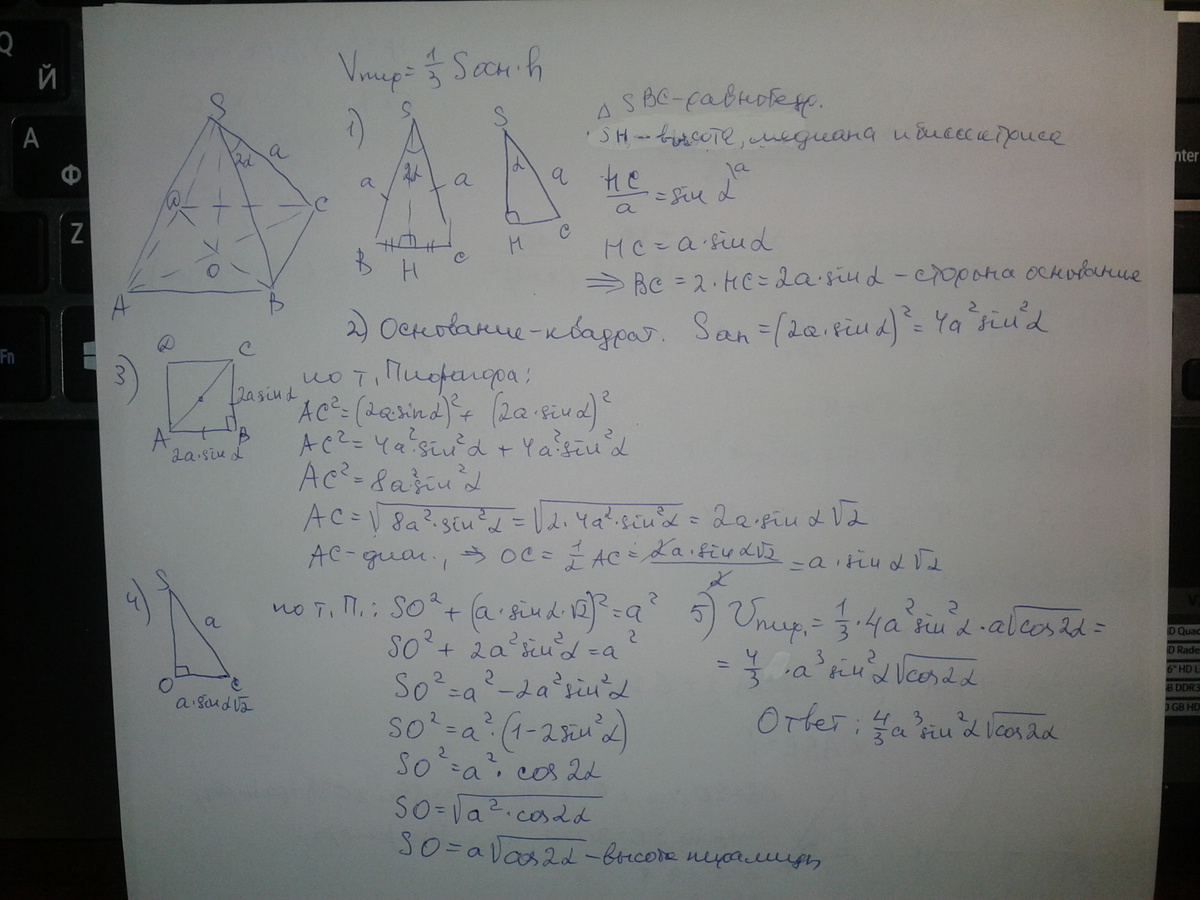 Vпир = 1/3 Sосн·h
S
2α
a
D
C
O
A
B
1)
S
a
2α
a
B
H
C
S
α
a
H
C
△SBC – равнобедр.
SH – высота, медиана и биссектриса
HC/a = sin α \a
HC = a·sin α
⇒ BC = 2·HC = 2a·sin α – сторона основание
2) Основание – квадрат. Sосн = (2a·sin α)² = 4a² sin² α
3)
D
C
2a sin α
A
B
2a·sin α
по т. Пифагора:
AC² = (2a·sin α)² + (2a·sin α)²
AC² = 4a²·sin² α + 4a²·sin² α
AC² = 8a² sin² α
AC = √(8a²·sin² α) = √(2·4a²·sin² α) = 2a·sin α √2
AC – диаг., ⇒ OC = 1/2 AC = 2a·sin α √2/2 = a·sin α √2
4)
S
a
O
C
a·sin α √2
по т. П.: SO² + (a·sin α·√2)² = a²
SO² + 2a² sin² α = a²
SO² = a² – 2a² sin² α
SO² = a²·(1 – 2 sin² α)
SO² = a²·cos 2α
SO = √(a²·cos 2α)
SO = a √(cos 2α) – высота пирамиды
5) Vпир. = 1/3·4a² sin² α·a √(cos 2α) =
= 4/3·a³ sin² α √(cos 2α)
Ответ: 4/3 a³ sin² α √(cos 2α)
Q
Й
A
Ф
Z
Fn
nter